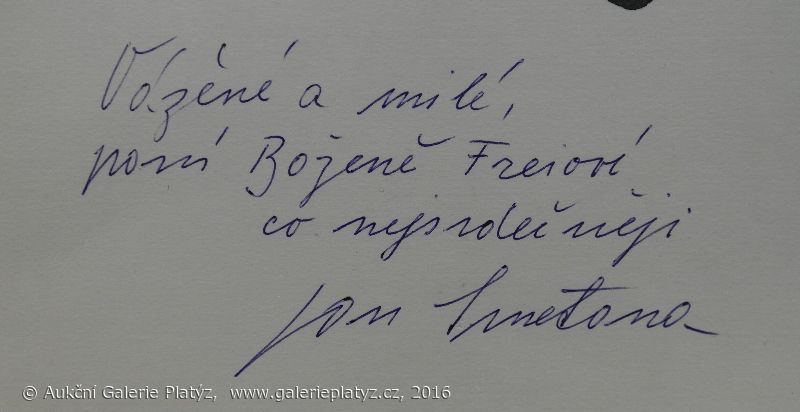 Vážené a milé,
paní Boženě Freiové
co nejsrdečněji
Jan Smetana
© Aukční Galerie Platýz, www.galerieplatyz.cz, 2016